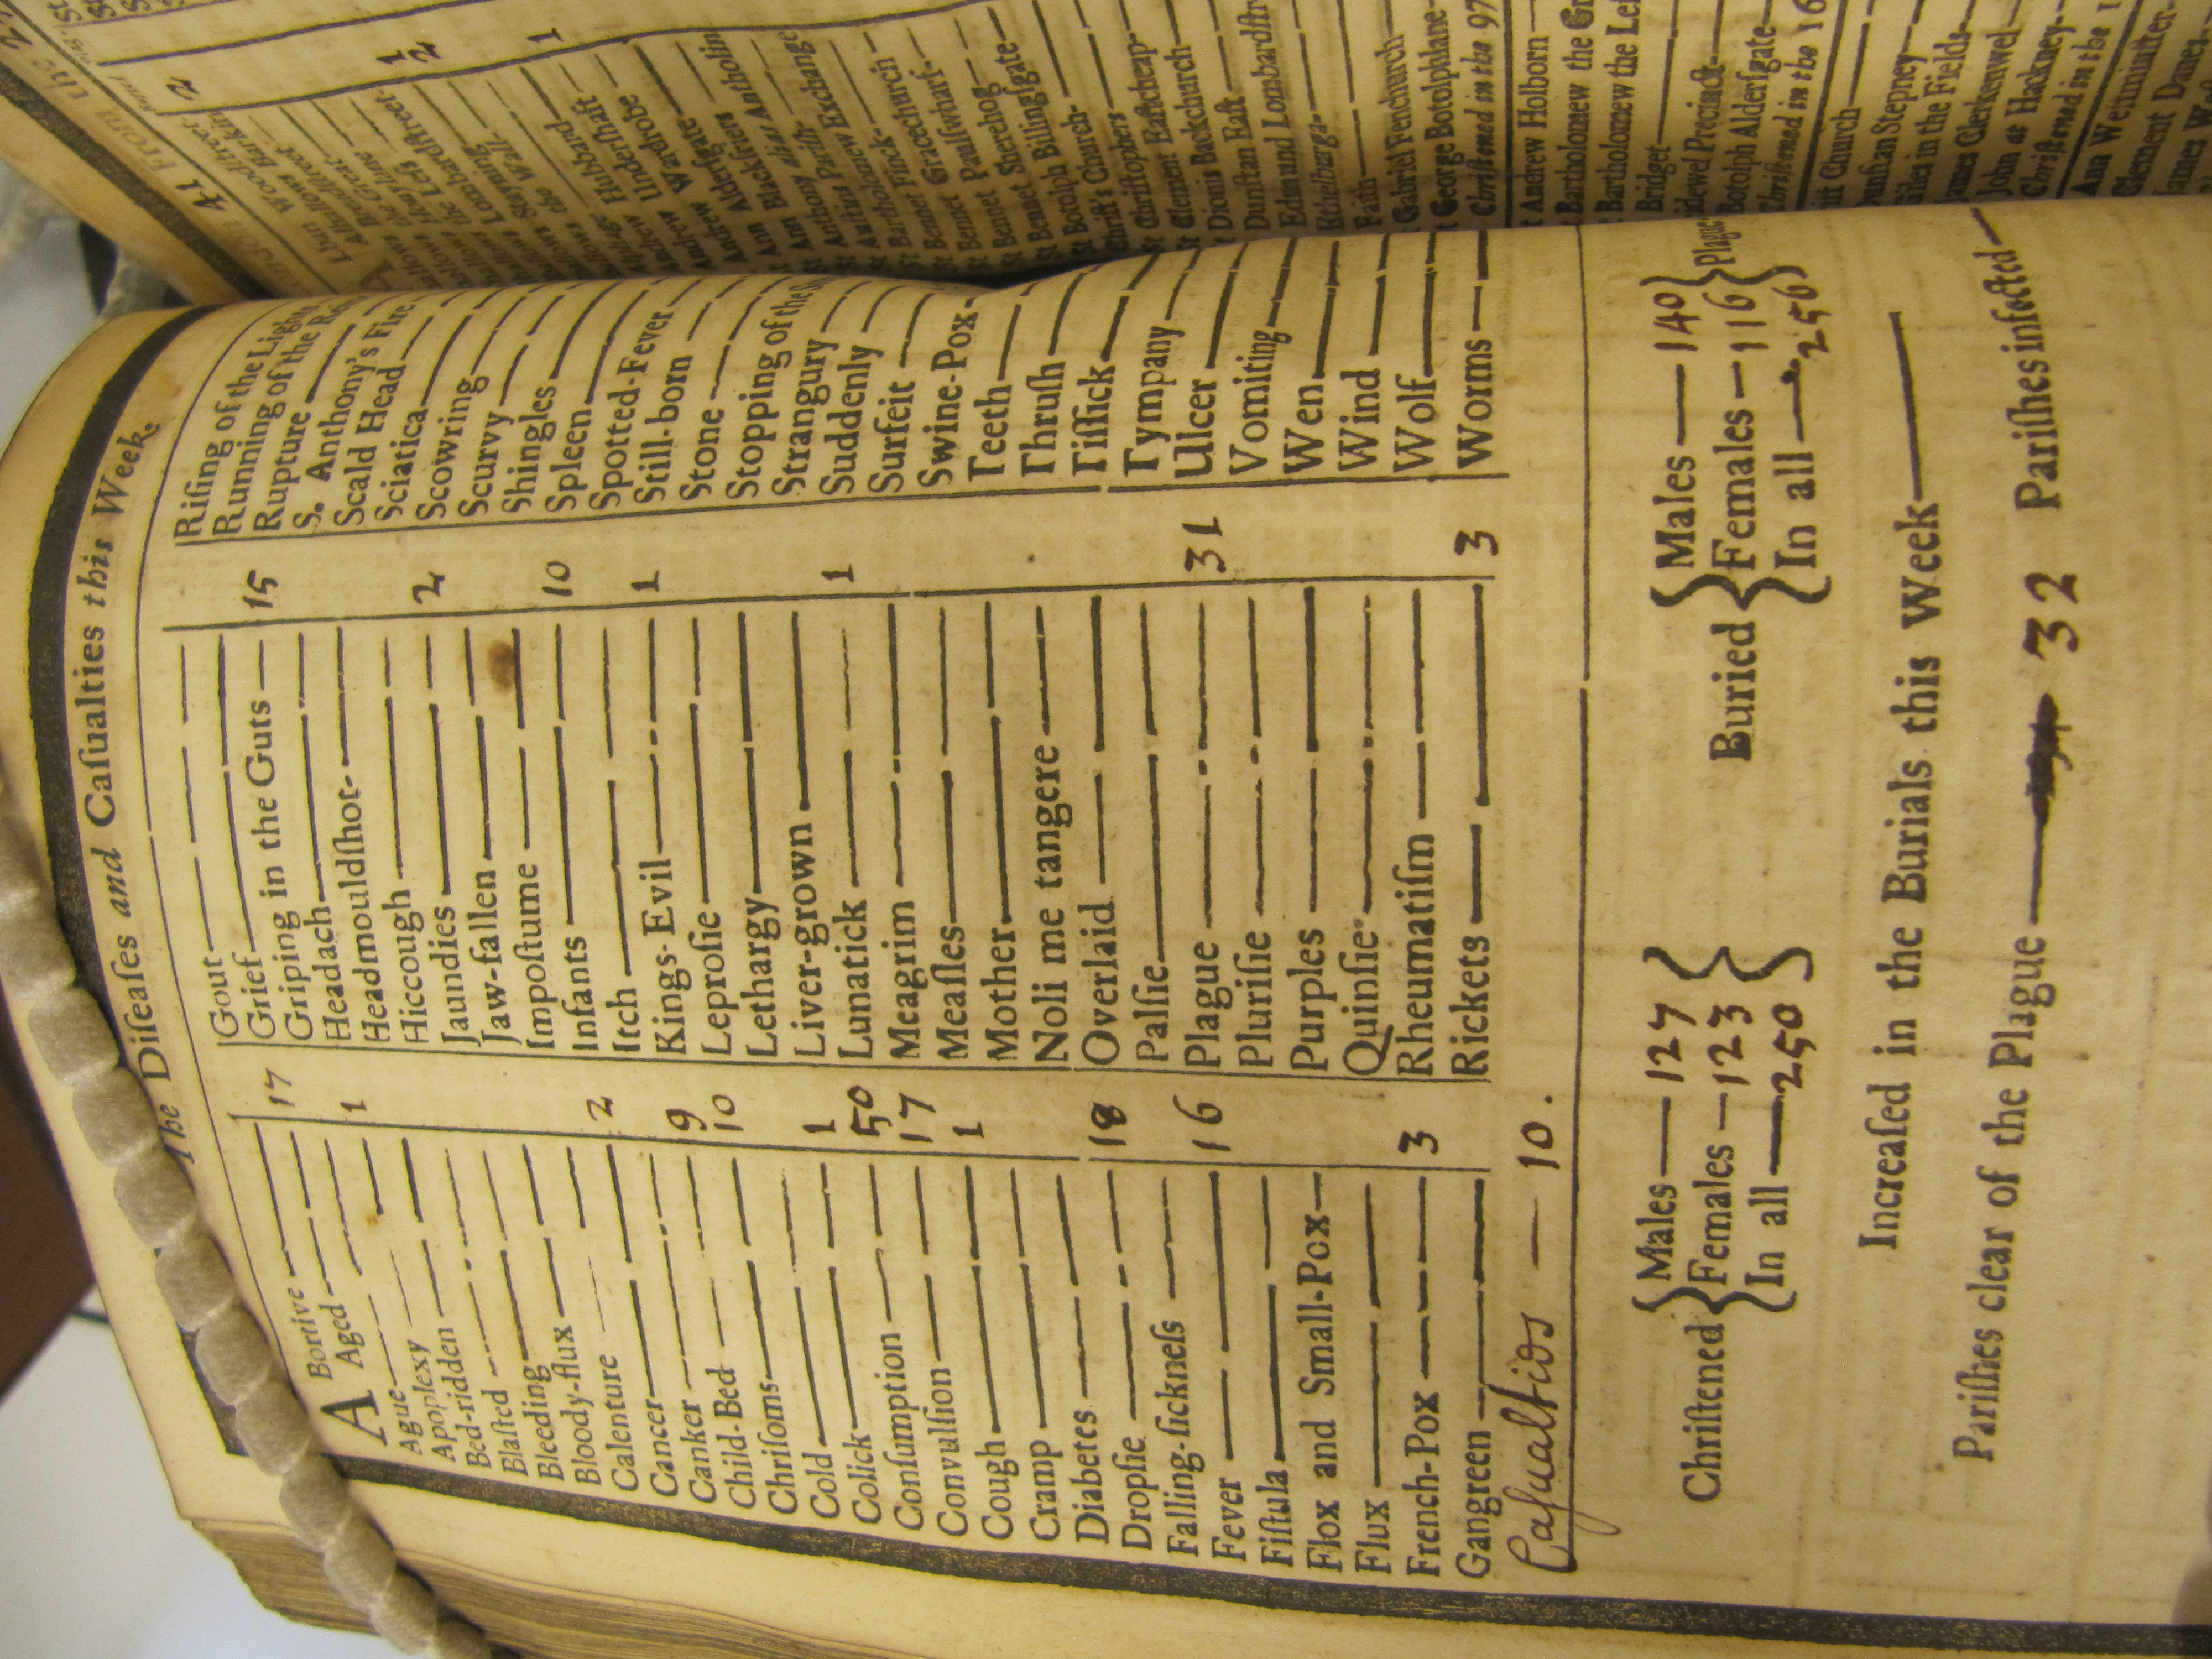 The Diſeaſes and Caſualties this Week.
ABortive 1
Aged 17
Ague
Apoplexy 1
Bed-ridden
Blaſted
Bleeding
Bloody-flux
Calenture
Cancer 2
Canker
Child-Bed 9
Chriſoms 10
Cold
Colick 1
Conſumption 50
Convulſion 17
Cough 1
Cramp
Diabetes
Dropſie 18
Falling-ſickneſs
Fever 16
Fiſtula
Flox and Small-Pox
Flux
French-Pox 3
Gangreen
Caſualties — 10.
Gout
Grief
Griping in the Guts 15
Headach
Headmouldſhot
Hiccough
Jaundies 2
Jaw-fallen
Impoſtume
Infants 10
Itch
Kings-Evil 1
Leproſie
Lethargy
Liver-grown
Lunatick 1
Meagrim
Meaſles
Mother
Noli me tangere
Overlaid
Palſie
Plague 31
Pluriſie
Purples
Quinſie
Rheumatiſm
Rickets 3
Riſing of the Lights
Running of the
Rupture
S. Anthony's Fire
Scald Head
Sciatica
Scowring
Scurvy
Shingles
Spleen
Spotted-Fever
Still-born
Stone
Stopping of the
Strangury
Suddenly
Surfeit
Swine-Pox
Teeth
Thruſh
Tiſſick
Tympany
Ulcer
Vomiting
Wen
Wind
Wolf
Worms
Chriſtened { Males — 127 Females — 123 In all — 250 }
Buried { Males — 140 Females — 116 In all — 256 } Plague
Increaſed in the Burials this Week
Pariſhes clear of the Plague — 32 Pariſhes infected
41 From the
Woodſtreet 2
Allhallows Barkin
Breadſtreet
the Great
the Leſs
Lombardſtreet 1
Stayning 2
the Wall
Hubbard
Underſhaft 1
Andrew Wardrobe
Ann Alderſgate
Ann Blackfriers
Anthony alias Antholin
Auſtins Pariſh
Bartholomew Exchange
Bennet Finck
Bennet Gracechurch
Bennet Paulſwharf
Bennet Sherehog
Botolph Billingſgate
Chriſt's Church
Chriſtophers
Clement Eaſtcheap
Dionis Backchurch
Dunſtan Eaſt
Edmund Lombardſtr
Ethelburga
Faith
Gabriel Fenchurch
George Botolphlane
Chriſtned in the 97
Andrew Holborn
Bartholomew the Gr
Bartholomew the Leſ
Bridget
Bridewel Precinct
Botolph Alderſgate
Chriſtned in the 16
Chriſt Church
Dunſtan Stepney
Giles in the Fields
James Clerkenwel
John at Hackney
Chriſtned in the 1
Ann Weſtminſter
Clement Danes